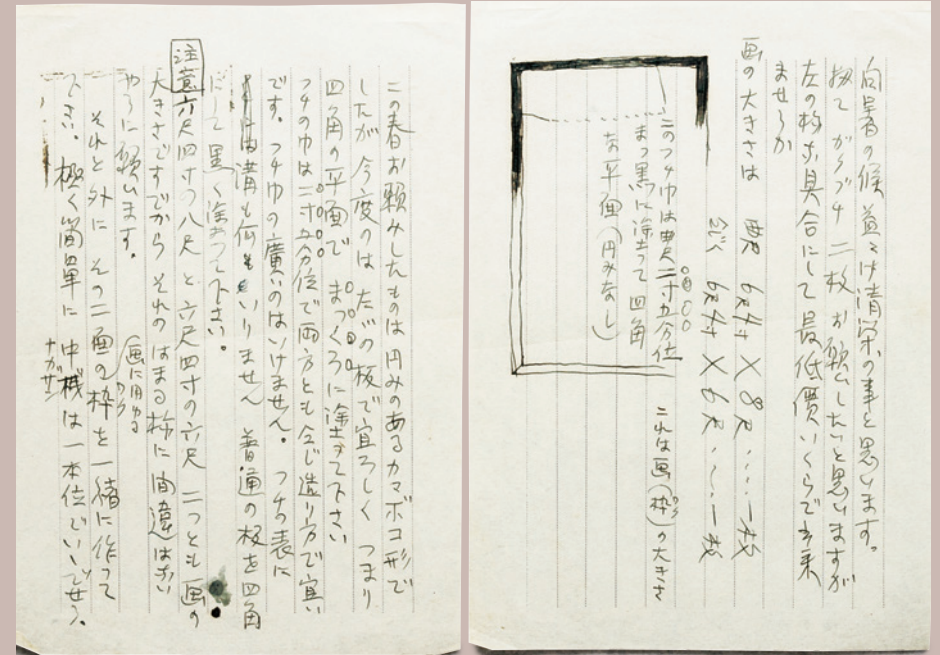 向暑の候 益々御清栄の事と思います。
扨て がくブチ 二枚 お願いしたいと思いますが
左の様な具合にして 最低價いくらで出来
ませうか
画の大きさは 6尺4寸 × 8尺 ・・・・ 一枚
6尺4寸 × 6尺 ・・・・ 一枚
このフチ巾は 二寸五分位
まっ黒に塗って 四角
な平面(円みなし)
これは画(枠)の大きさ
この春お願みしたものは 円みのあるカマボコ形で
したが 今度のは たゞの板で宜ろしく つまり
四角の平面で まっくろに塗って下さい
フチの巾は 二寸五分位で両方とも仝じ造り方で宜い
です。 フチ巾の廣いのはいけません。 フチの表に
は溝も何もいりません 普通の板を四角
にして 黒く塗って下さい。
注意 六尺四寸の八尺 と 六尺四寸の六尺 二つとも 画の
大きさですから それのはまる様に 間違はない
やうに願います。
それと外に その二画の枠を一緒に作って
画に用ゆる
わく
下さい。 極く簡単に 中棧は一本位でいいでせう。
ナカザン